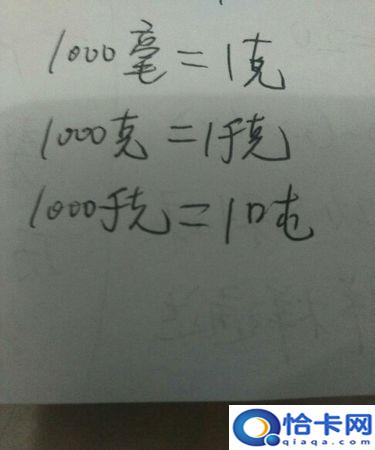 1000毫=1克
1000克=1千克
1000千克=1吨
恰卡网
qiaqa.com